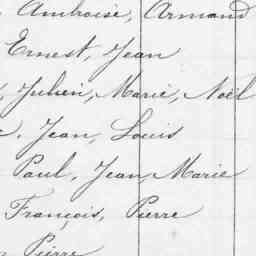 Ambroise, Armand
Ernest, Jean
, Julien, Marie, Noël
, Jean, Louis
Paul, Jean, Marie
François, Pierre
Pierre